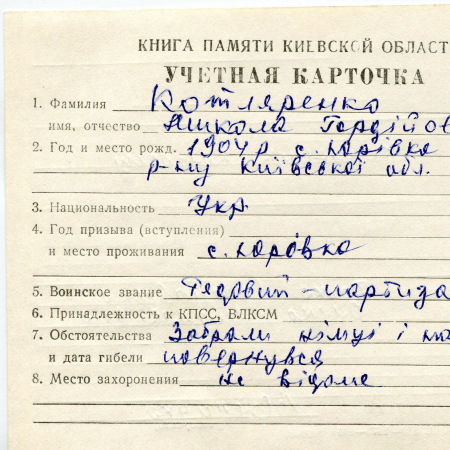 КНИГА ПАМЯТИ КИЕВСКОЙ ОБЛАСТ
УЧЕТНАЯ КАРТОЧКА
1. Фамилия Котляренко
имя, отчество Микола Гордійов
2. Год и место рожд. 1904 р с. Юрівка
р-ну Київської обл.
3. Национальность Укр.
4. Год призыва (вступления)
и место проживания с. Юрівка
5. Воинское звание Рядовий - партиза
6. Принадлежность к КПСС, ВЛКСМ
7. Обстоятельства Забрали німці і
и дата гибели повернувся
8. Место захоронения не відоме